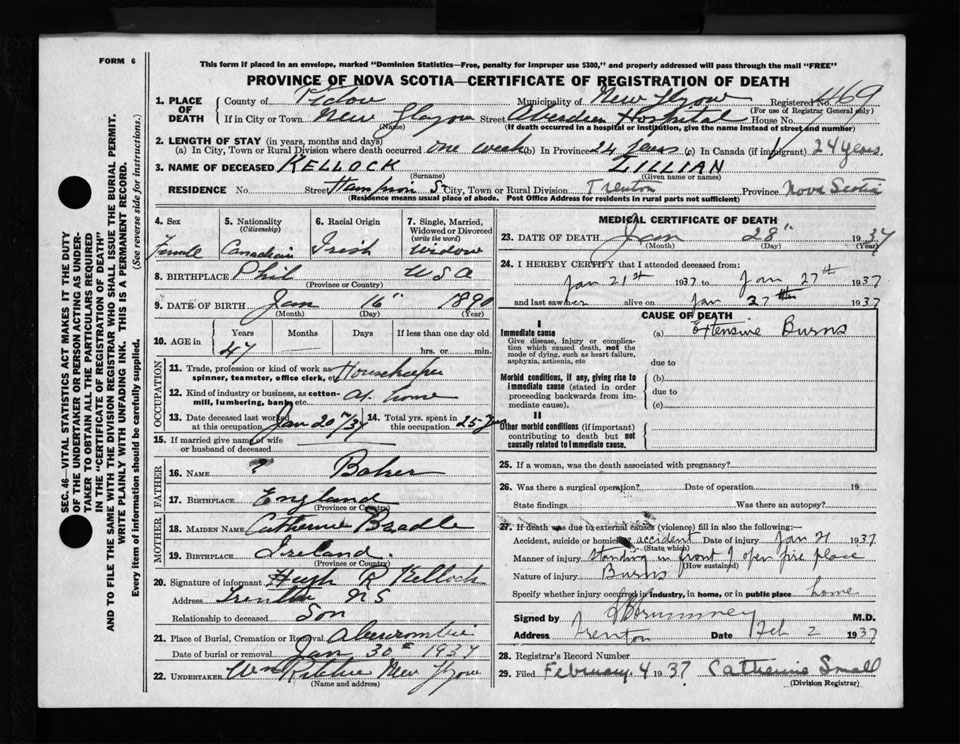 FORM 6
This form if placed in an envelope, marked "Dominion Statistics—Free, penalty for improper use $300," and properly addressed will pass through the mail "FREE"
PROVINCE OF NOVA SCOTIA—CERTIFICATE OF REGISTRATION OF DEATH
1. PLACE OF DEATH
County of Pictou Municipality of New Glasgow Registered No. 469
(For use of Registrar General only)
If in City or Town New Glasgow Street Aberdeen Hospital House No.
(Name) (If death occurred in a hospital or institution, give the name instead of street and number)
2. LENGTH OF STAY (in years, months and days)
(a) In City, Town or Rural Division where death occurred one week (b) In Province 24 years (c) In Canada (if immigrant) 24 years.
3. NAME OF DECEASED KELLOCK LILLIAN
(Surname) (Given name or names)
RESIDENCE No. Street Hampson St City, Town or Rural Division Trenton Province Nova Scotia
(Residence means usual place of abode. Post Office Address for residents in rural parts not sufficient)
4. Sex
Female
5. Nationality
(Citizenship)
Canadian
6. Racial Origin
Irish
7. Single, Married, Widowed or Divorced
(write the word)
Widow
8. BIRTHPLACE Phil USA
(Province or Country)
9. DATE OF BIRTH Jan 16" 1890
(Month) (Day) (Year)
10. AGE in
Years Months Days If less than one day old
47 hrs. or min.
OCCUPATION
11. Trade, profession or kind of work as spinner, teamster, office clerk, etc. Housekeeper
12. Kind of industry or business, as cotton-mill, lumbering, bank, etc. At home
13. Date deceased last worked at this occupation Jan 20"/37
14. Total yrs. spent in this occupation 25 years
15. If married give name of wife or husband of deceased
FATHER
16. NAME ? Baker
17. BIRTHPLACE England
(Province or Country)
MOTHER
18. MAIDEN NAME Catherine Bradle
19. BIRTHPLACE Ireland.
(Province or Country)
20. Signature of informant Hugh R Kellock
Address Trenton NS
Relationship to deceased Son
21. Place of Burial, Cremation or Removal Abercrombie
Date of burial or removal Jan 30" 1937
22. UNDERTAKER Wm Ritchie New Glasgow
(Name and address)
MEDICAL CERTIFICATE OF DEATH
23. DATE OF DEATH Jan 28" 1937
(Month) (Day) (Year)
24. I HEREBY CERTIFY that I attended deceased from:
Jan 21st 1937 to Jan 27th 1937
and last saw her alive on Jan 27th 1937
CAUSE OF DEATH
I
Immediate cause
Give disease, injury or complication which caused death, not the mode of dying, such as heart failure, asphyxia, asthenia, etc
(a) Extensive Burns
due to
Morbid conditions, if any, giving rise to immediate cause (stated in order proceeding backwards from immediate cause).
(b)
due to
(c)
II
Other morbid conditions (if important) contributing to death but not causally related to immediate cause.
25. If a woman, was the death associated with pregnancy?
26. Was there a surgical operation? Date of operation 19
State findings Was there an autopsy?
27. If death was due to external causes (violence) fill in also the following:—
Accident, suicide or homicide accident Date of injury Jan 21 1937
(State which)
Manner of injury Standing in front of open fire place
(How sustained)
Nature of injury Burns
Specify whether injury occurred in industry, in home, or in public place home
Signed by M.D.
Address Trenton Date Feb 2 1937
28. Registrar's Record Number
29. Filed February 4 1937 Catherine Small
(Division Registrar)
SEC. 46—VITAL STATISTICS ACT MAKES IT THE DUTY
OF THE UNDERTAKER OR PERSON ACTING AS UNDER-
TAKER TO OBTAIN ALL THE PARTICULARS REQUIRED
IN THE "CERTIFICATE OF REGISTRATION OF DEATH"
AND TO FILE THE SAME WITH THE DIVISION REGISTRAR WHO SHALL ISSUE THE BURIAL PERMIT.
WRITE PLAINLY WITH UNFADING INK. THIS IS A PERMANENT RECORD.
Every item of information should be carefully supplied. (See reverse side for instructions.)